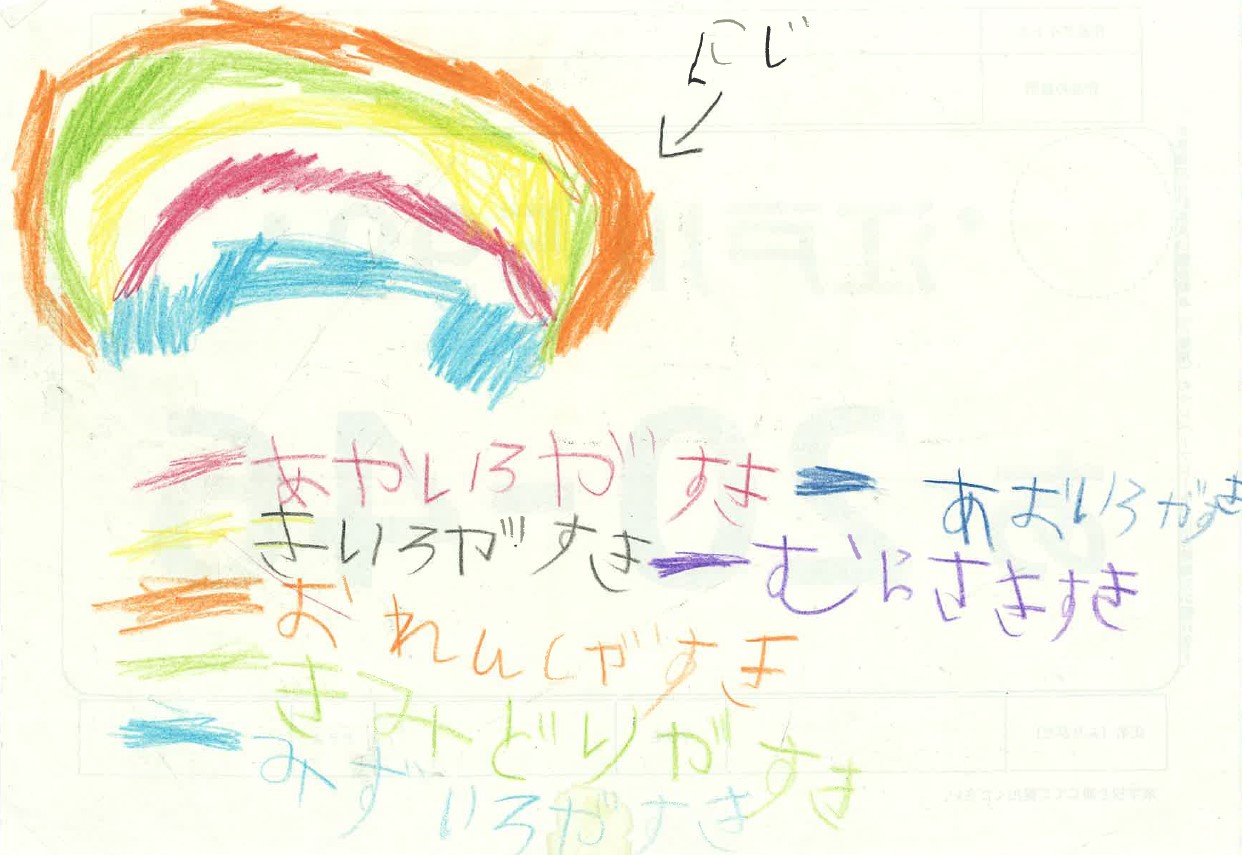 にじ
あかいろがすき
あおいろがすき
きいろがすき
むらさきすき
おれんしがすき
きみどりがすき
みずいろがすき